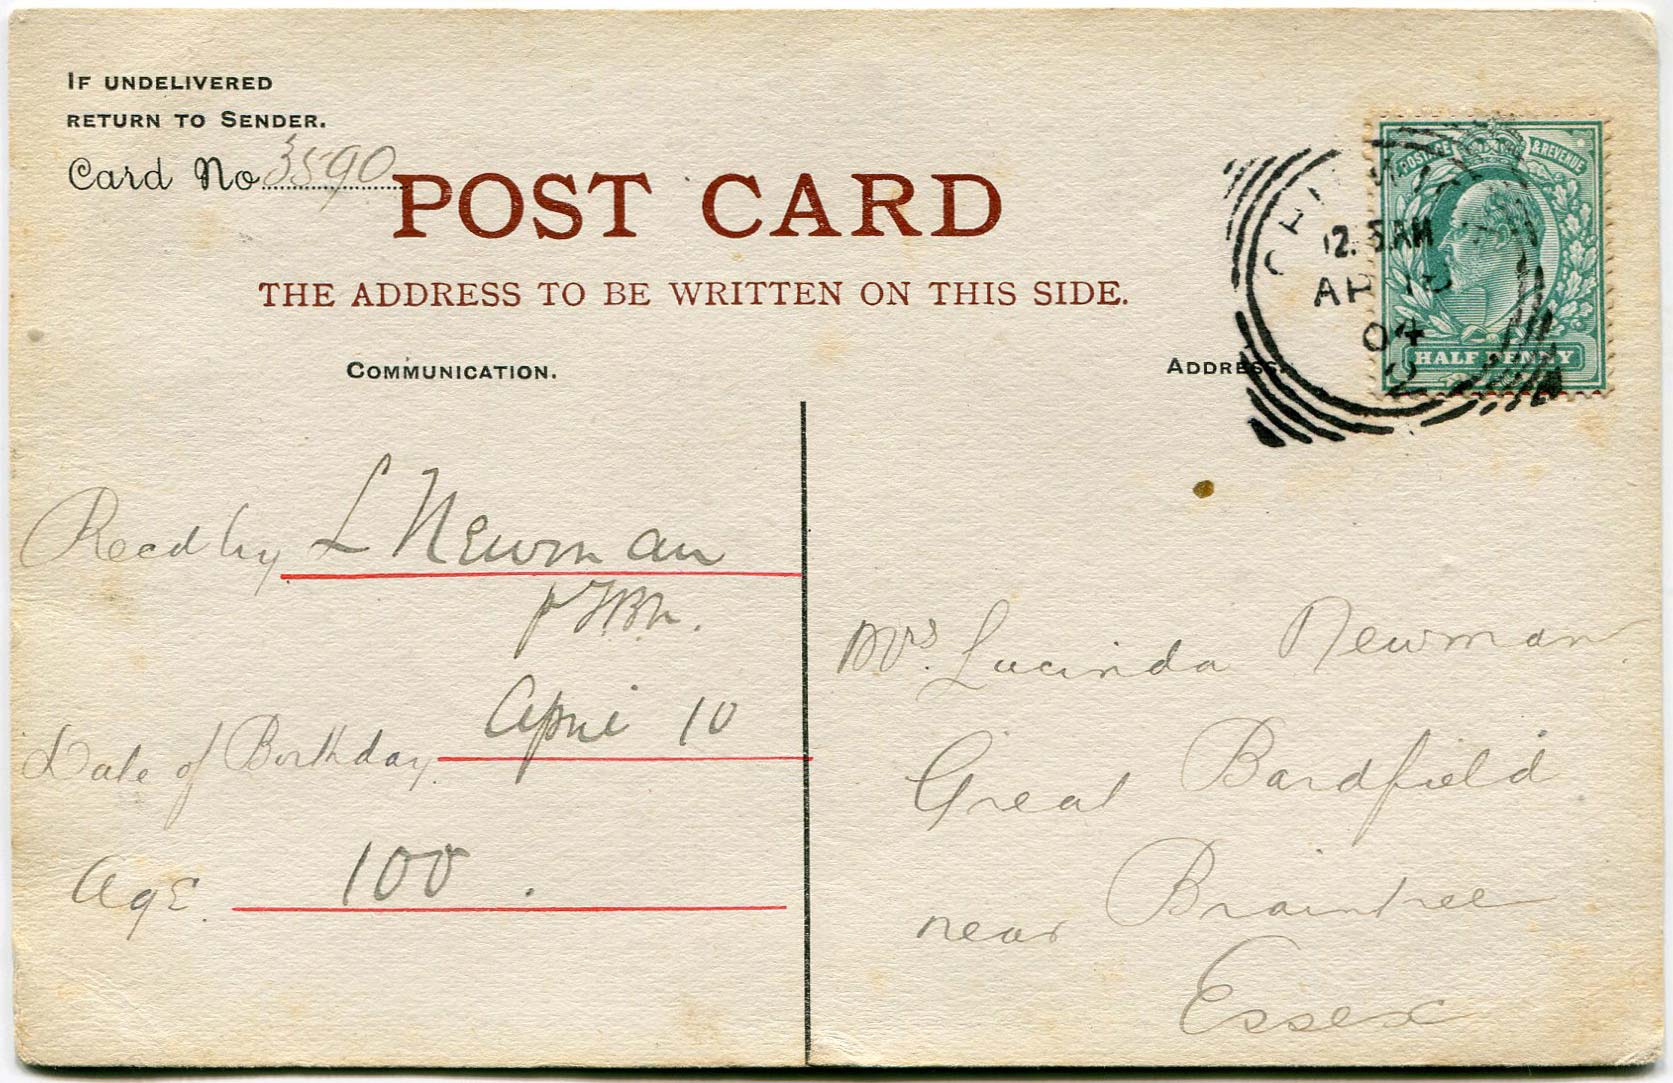 IF UNDELIVERED
RETURN TO SENDER.
Card No 3590
POST CARD
THE ADDRESS TO BE WRITTEN ON THIS SIDE.
COMMUNICATION.
ADDRESS.
POSTAGE & REVENUE
HALF PENNY
12.5AM
AP
04
2
Recd by L Newman
Date of Birthday April 10
Age. 100.
Mrs. Lucinda Newman
Great Bardfield
near Braintree
Essex